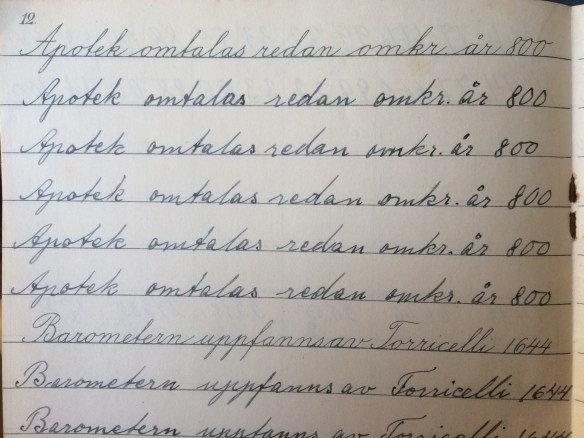 12.
Apotek omtalas redan omkr. år 800
Apotek omtalas redan omkr. år 800
Apotek omtalas redan omkr. år 800
Apotek omtalas redan omkr. år 800
Apotek omtalas redan omkr. år 800
Apotek omtalas redan omkr. år 800
Barometern uppfanns av Torricelli 1644
Barometern uppfanns av Torricelli 1644
Barometern uppfanns av Torricelli 1644